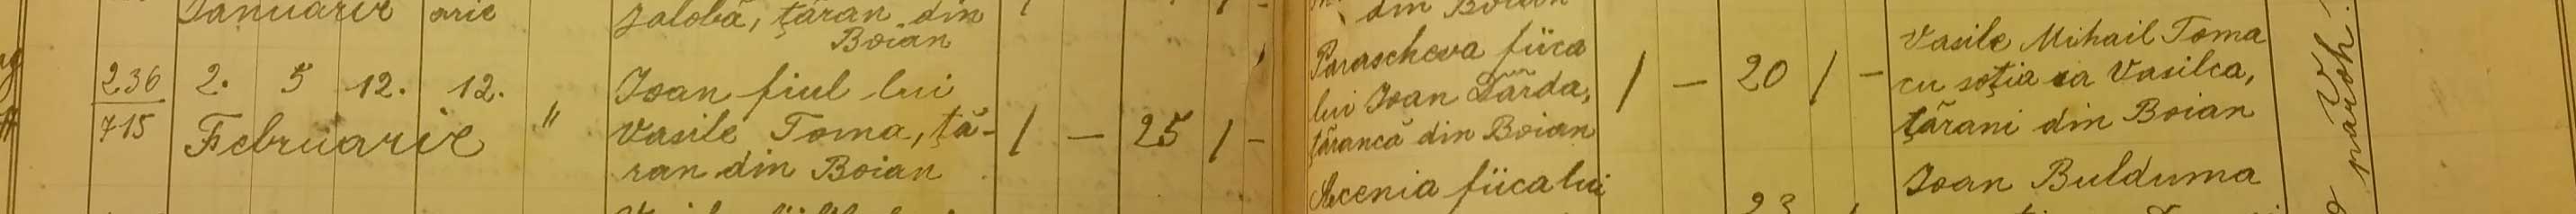 Ianuarie arie
Jalobă, țăran din
Boian
din Boian
236
715
2. 5 12. 12.
Februarie "
Ioan fiul lui
Vasile Toma, ță-
ran din Boian
/ — 25 / —
Parascheva fiica
lui Ioan Dărda,
țărancă din Boian
/ — 20 / —
Vasile Mihail Toma
cu soția sa Vasilca,
țărani din Boian
fiica lui
23
Ioan Bulduma
paroh.